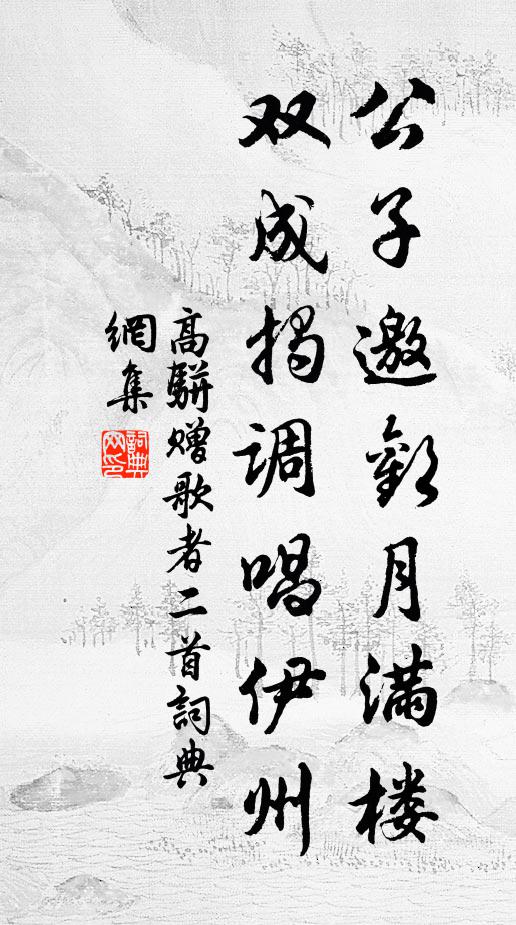 公子邀歡月满楼
双成揭调唱伊州
高駢赠歌者二首詞典
網集
詞典網印